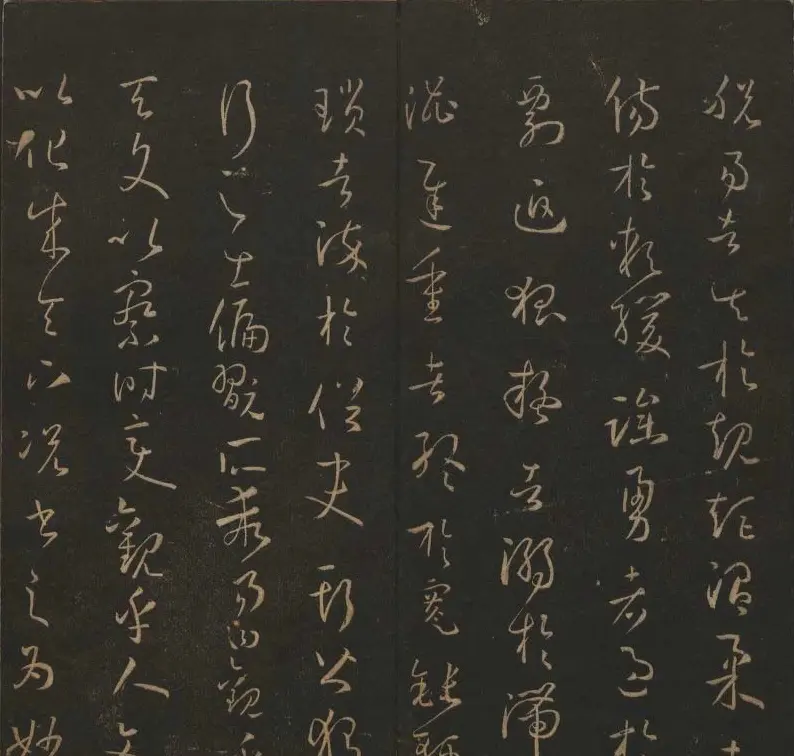 脱易者失於規矩温柔
傷於軟緩躁勇者過於
剽迫狐疑者溺於滯
澀遲重者終於蹇鈍輕
瑣者染於俗吏斯皆獨
行之士偏翫所乖易曰觀乎
天文以察時變觀乎人文
以化成天下況書之為妙